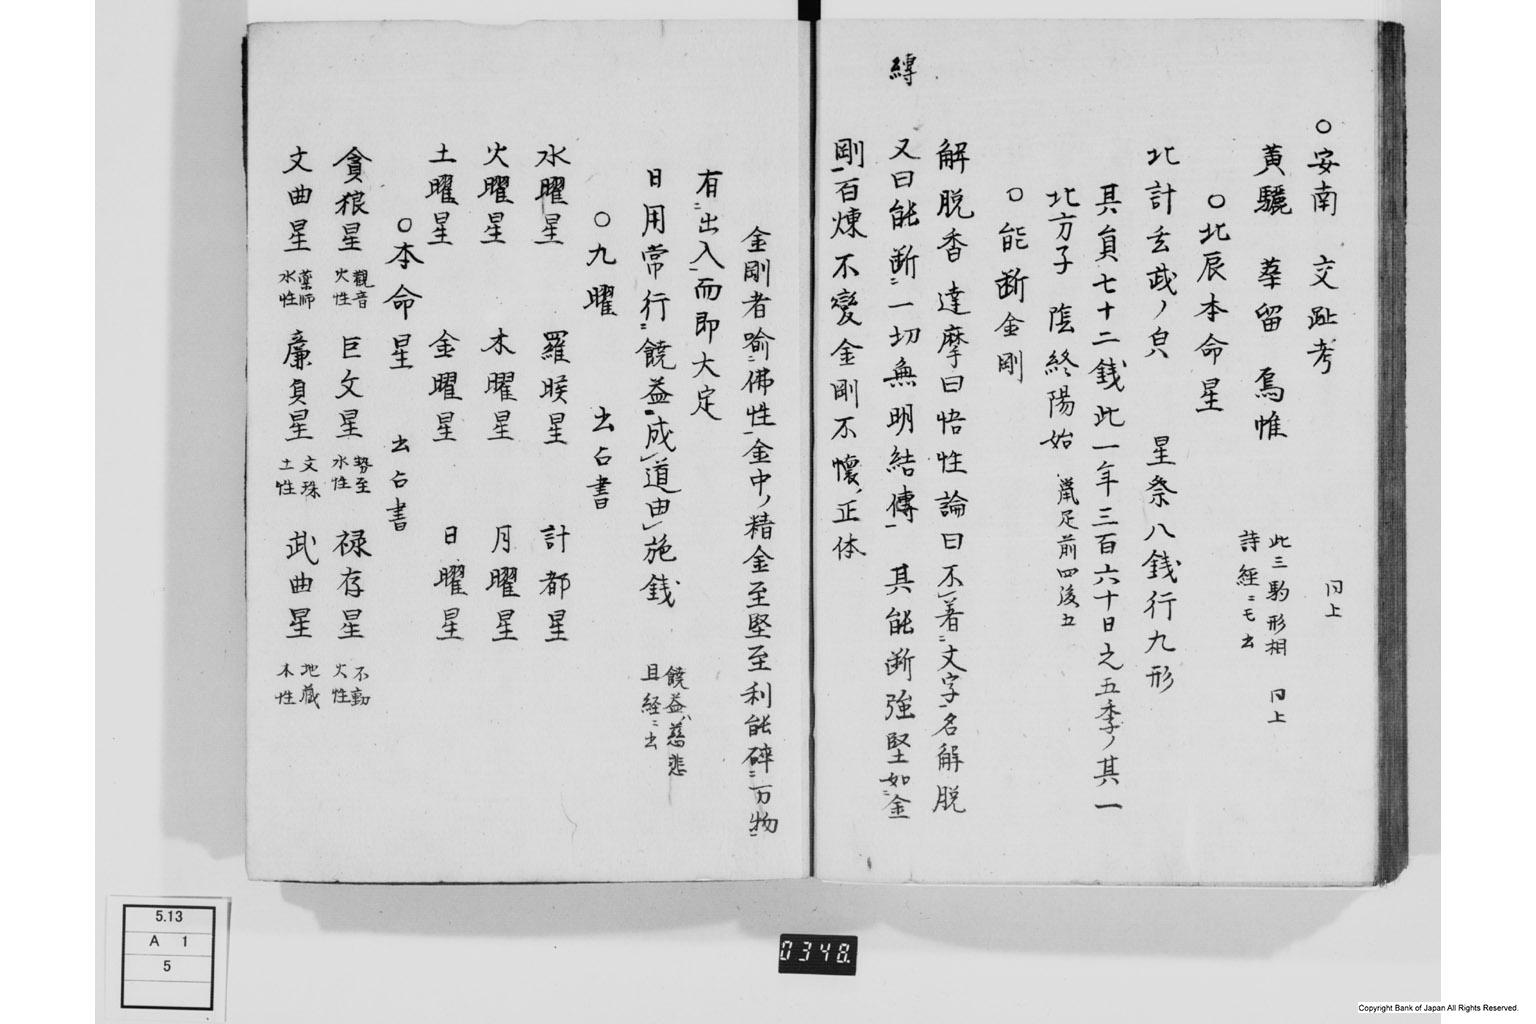 ○安南　交趾考　同上
黃驪　蕐留　烏帷　此三駒形相　同上
詩經ニモ出
○北辰本命星
北計玄武ノ㒵　星祭八銭行九形
其員七十二銭此一年三百六十日之五季ノ其一
北方子　陰終陽始　鼡足前四後五
○能断金剛
解脱香　達摩曰悟性論曰不著ニ文字一名解脱
縛
又曰能断ニ一切無明結傳一　其能断強堅如ニ金
剛一百煉不變金剛不懷ノ正体
金剛者喻ニ佛性一金中ノ精金至堅至利能碎ニ万物一
有ニ出入一而即大定
日用常行ニ饒益一成道由施銭　饒益ハ慈悲
且経ニ出
○九曜　出占書
水曜星　羅睺星　計都星
火曜星　木曜星　月曜星
土曜星　金曜星　日曜星
○本命星　出占書
貪狼星　觀音　火性　巨文星　勢至　水性　禄存星　不動　火性
文曲星　藥師　水性　廉貞星　文珠　土性　武曲星　地藏　木性
5.13
A 1
5
0348.
Copyright Bank of Japan All Rights Reserved.